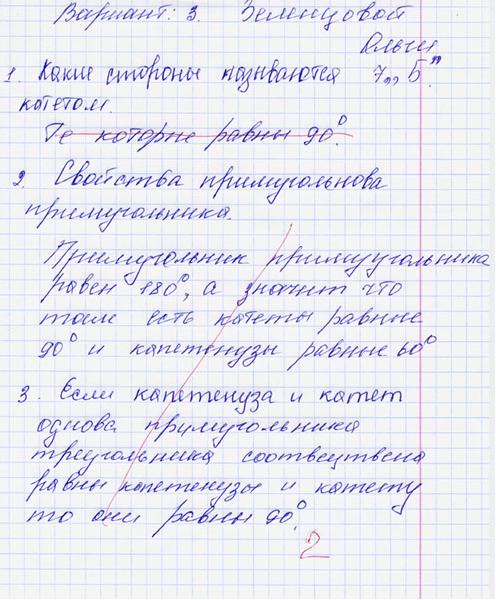 Вариант: 3. Зеленцовой
Ольги
1. Какие стороны називаются 7„Б“
катетом.
Те которые равны 90°.
2. Свойства примугольнова
примугольника.
Примугольник примуугольника
равен 180°, а значит что
там есть катеты равные
90° и капетенузы равные 60°
3. Если капетенуза и катет
однова прумугольника
треугольника соотвецтвена
равны капетенузы и катету
то они равны 90°.
2